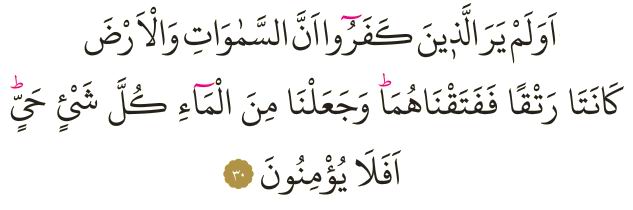 اَوَلَمْ يَرَ الَّذ۪ينَ كَفَرُٓوا اَنَّ السَّمٰوَاتِ وَالْاَرْضَ
كَانَتَا رَتْقًا فَفَتَقْنَاهُمَاۜ وَجَعَلْنَا مِنَ الْمَٓاءِ كُلَّ شَيْئٍ حَيٍّۜ
اَفَلَا يُؤْمِنُونَ ﴿٣٠﴾